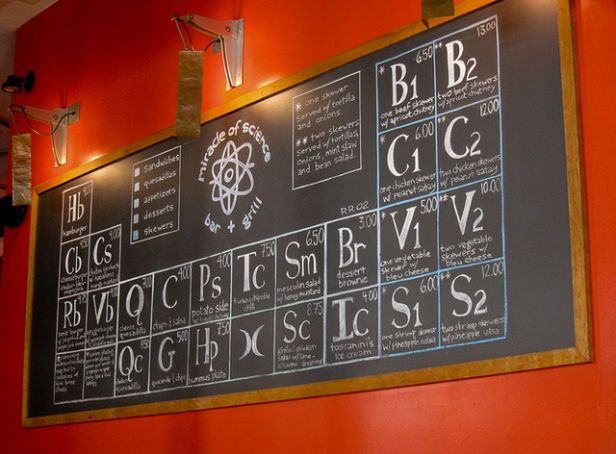 miracle of science
bar + grill
sandwiches
quesadillas
appetizers
desserts
skewers
* one skewer
served w/tortilla
and onions.
** two skewers
served w/tortillas,
onions, mint slaw
and bean salad.
RR02
Hb
hamburger
Cb
cheeseburger
Cs
chicken sandwich
Rb
ronie burger
Vb
Q
cheese
quesadilla
4.00
C
chips & salsa
4.00
Ps
potato side
Tc
7.50
turkey chipotle
chili
Sm
6.50
mesculin salad
w/ honey mustard
Br
3.00
dessert
brownie
Qc
chicken
quesadilla
G
guacamole & chips
Hp
hummus plate
Sc
8.75
Ic
4.00
toscanini's
ice cream
* B1
6.50
one beef skewer
w/apricot chutney
** B2
13.00
two beef skewers
w/apricot chutney
* C1
6.00
one chicken skewer
w/ peanut satay
** C2
12.00
two chicken skewers
w/ peanut satay
* V1
5.00
one vegetable
skewer w/
bleu cheese
** V2
10.00
two vegetable
skewers w/
bleu cheese
* S1
6.00
one shrimp skewer
w/pineapple salsa
** S2
12.00
two shrimp skewers
w/pineapple salsa